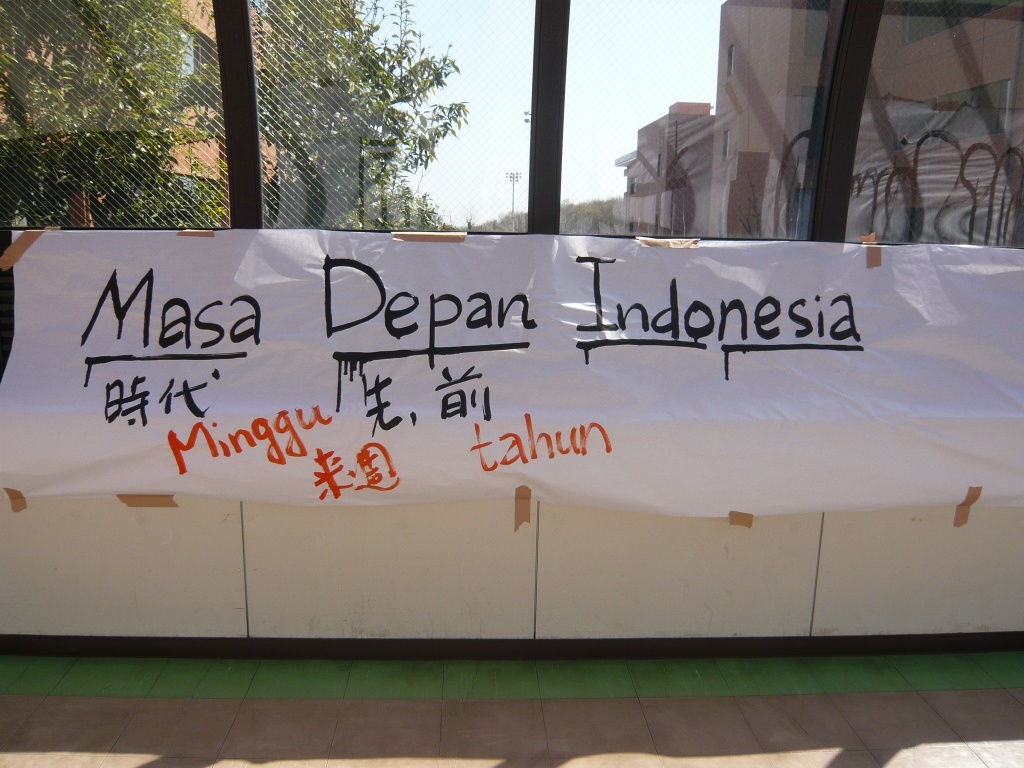 Masa Depan Indonesia
時代 先, 前
Minggu tahun
来週